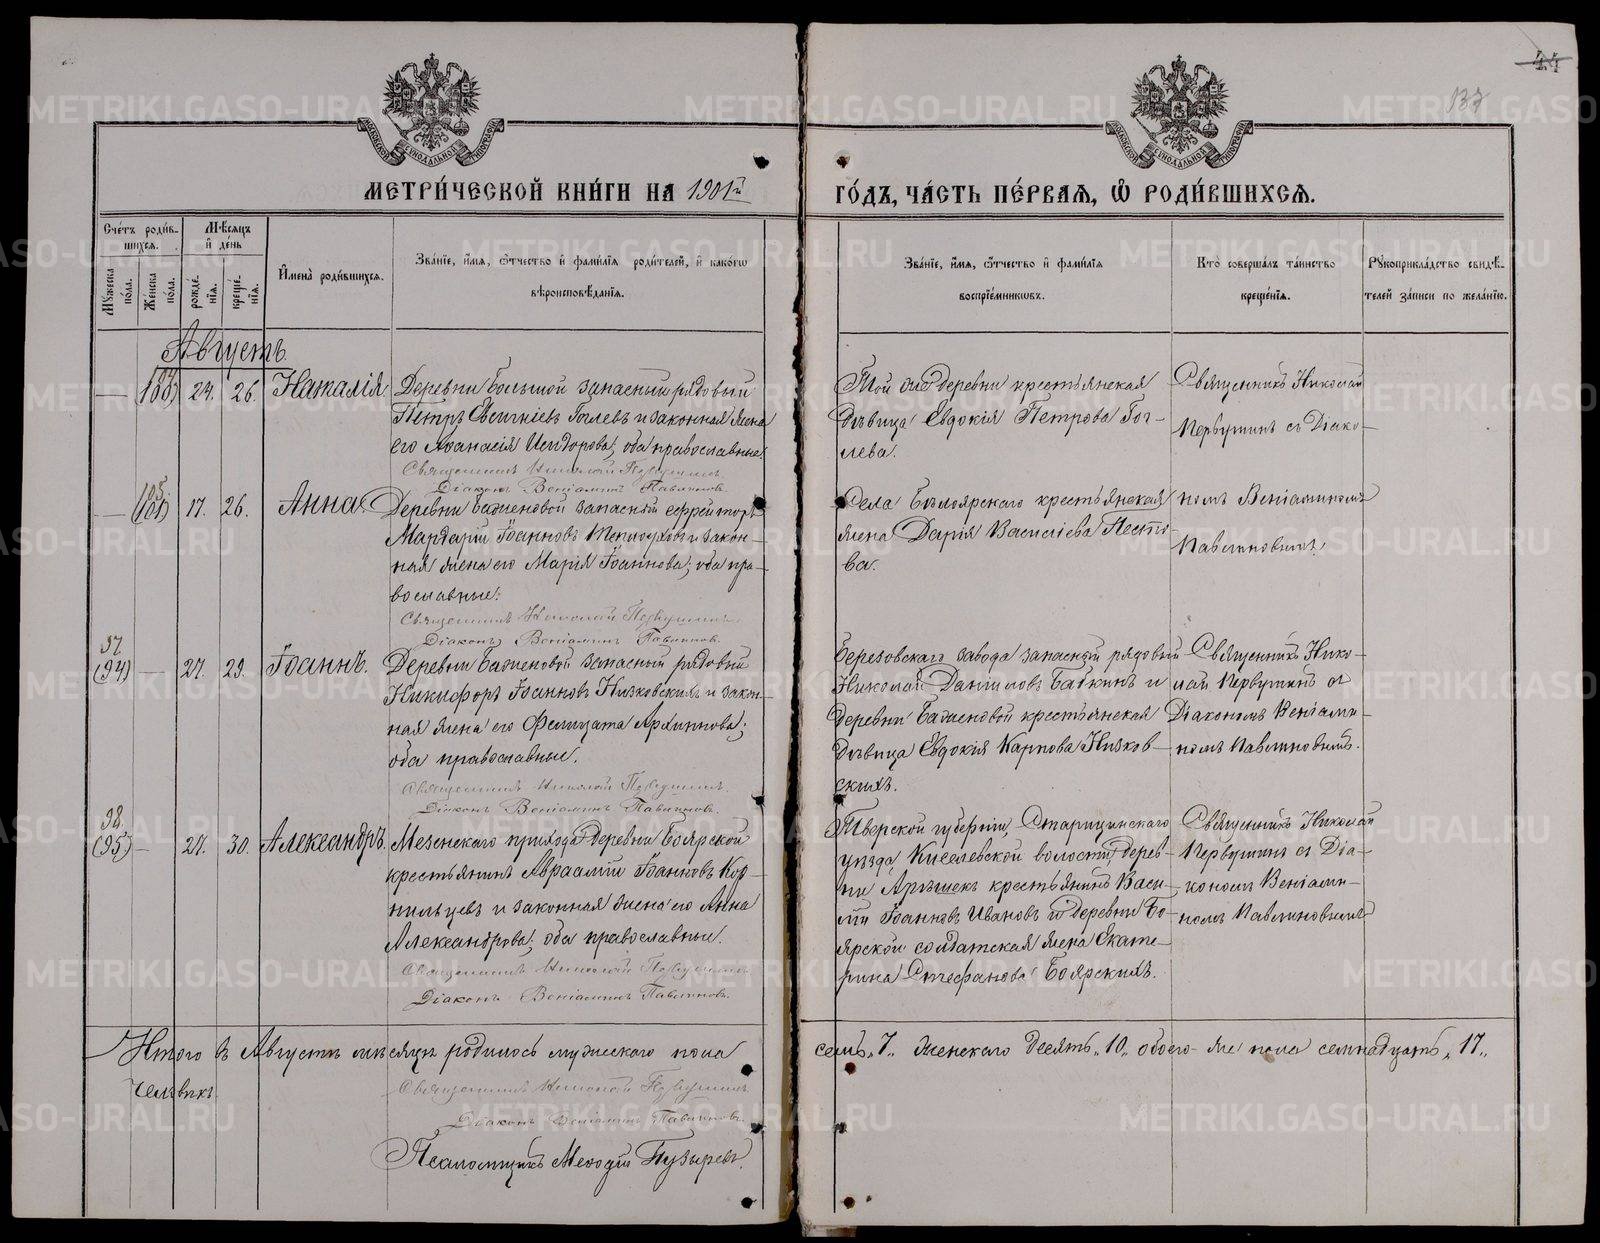 44
137
МОСКОВСКОЙ СѴНОДАЛЬНОЙ ТИПОГРАФІИ
МОСКОВСКОЙ СѴНОДАЛЬНОЙ ТИПОГРАФІИ
МЕТРИ́ЧЕСКОЙ КНИ́ГИ НА 1901й
ГО́ДЪ, ЧА́СТЬ ПЕ́РВАЯ, Ѡ҆ РОДИ́ВШИХСЯ.
Сче́тъ роди́в-
шихся.
Мꙋ́жеска по́ла.
Же́нска по́ла.
Мѣ́сяцъ
и҆ де́нь
рожде́-
нїя.
креще́-
нїя.
И҆мена̀ роди́вшихся.
Зва́нїе, и҆́мя, ѻ҆́тчество и҆ фами́лїя роди́телей, и҆ како́гѡ
вѣроисповѣ́данїя.
Зва́нїе, и҆́мя, ѻ҆́тчество и҆ фами́лїя
воспрїе́мникѡвъ.
Кто̀ соверша́лъ та́инство
креще́нїя.
Рꙋкоприкла́дство свидѣ́-
телей за́писи по жела́нїю.
Августъ.
24. 26. Наталія
Деревни Большой запасный рядовой
Петръ Евсигніевъ Гоглевъ и законная жена
его Аѳанасія Исидорова; оба православные.
Священникъ Николай Первушинъ
Діаконъ Веніаминъ Павлиновъ.
Той же деревни крестьянская
дѣвица Евдокія Петрова Гог-
лева.
Священникъ Николай
Первушинъ съ Діако-
105
(101) 17. 26. Анна.
Деревни Баженовой запасный ефрейторъ
Мардарій Іоанновъ Теплоуховъ и закон-
ная жена его Марія Іоаннова; оба пра-
вославные.
Священникъ Николай Первушинъ
Діаконъ Веніаминъ Павлиновъ.
Села Бѣлоярскаго крестьянская
жена Дарія Василіева Песто-
ва.
номъ Веніаминомъ
Павлиновымъ.
97
(94) — 27. 29. Іоаннъ.
Деревни Баженовой запасный рядовый
Никифоръ Іоанновъ Низковскихъ и закон-
ная жена его Фелицата Архиппова;
оба православные.
Священникъ Николай Первушинъ.
Діаконъ Веніаминъ Павлиновъ.
Березовскаго завода запасный рядовый
Николай Даніиловъ Бабкинъ и
деревни Баженовой крестьянская
дѣвица Евдокія Карпова Низков-
скихъ.
Священникъ Нико-
лай Первушинъ съ
Діакономъ Веніами-
номъ Павлиновымъ.
98.
(95) — 27. 30. Александръ.
Мезенскаго прихода деревни Боярской
крестьянинъ Авраамій Іоанновъ Кор-
нильцевъ и законная жена его Анна
Александрова; оба православные.
Священникъ Николай Первушинъ
Діаконъ Веніаминъ Павлиновъ.
Тверской губерніи, Старицкаго
уѣзда Киселевской волости, дерев-
ни крестьянинъ Васи-
лій Іоанновъ Ивановъ и деревни Бо-
ярской солдатская жена Екате-
рина Стефанова Боярскихъ.
Священникъ Николай
Первушинъ съ Діа-
кономъ Веніами-
номъ Павлиновымъ
Итого въ Августѣ мѣсяцѣ родилось мужескаго пола
семь „7„ женскаго десять „10„ обоего же пола семнадцать „17„
человѣкъ.
Священникъ Николай Первушинъ.
Діаконъ Веніаминъ Павлиновъ.
Псаломщикъ Меѳодій Пузыревъ.
METRIKI.GASO-URAL.RU